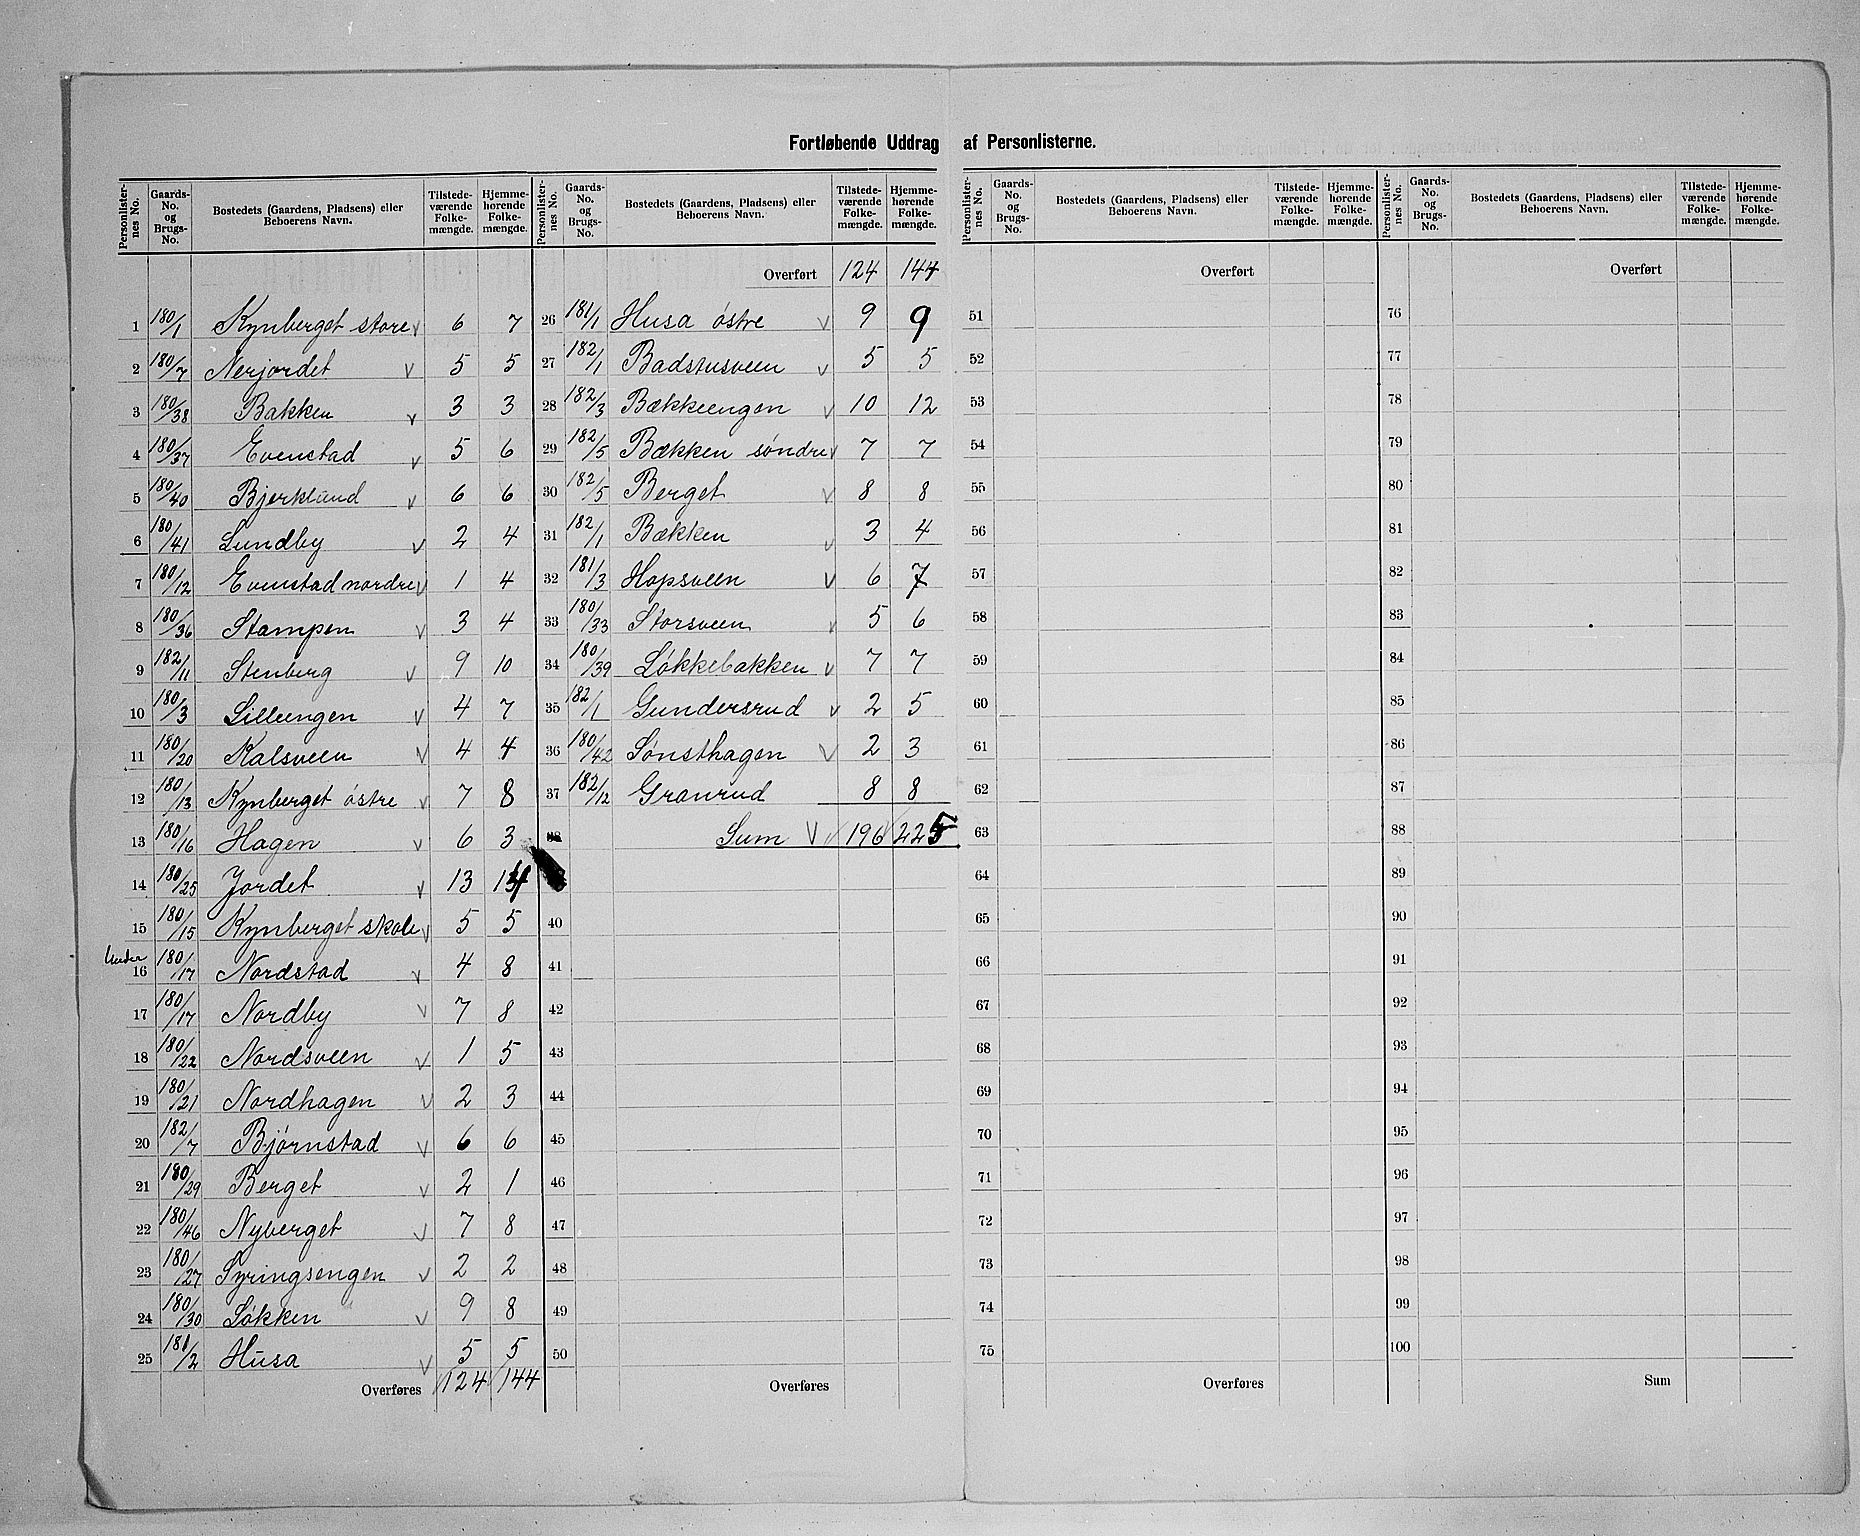 Fortløbende Uddrag af Personlisterne.
Personlisternes No. Gaards-No. og Brugs-No. Bostedets (Gaardens, Pladsens) eller Beboerens Navn. Tilstedeværende Folkemængde. Hjemmehørende Folkemængde.
1 180/1 Kynberget store v 6 7
2 180/7 Nerjordet v 5 5
3 180/38 Bakken v 3 3
4 180/37 Evenstad v 5 6
5 180/40 Bjerklund v 6 6
6 180/41 Lundby v 2 4
7 180/12 Evenstad nordre v 1 4
8 180/36 Stampen v 3 4
9 182/11 Stenberg v 9 10
10 180/3 Lilleengen v 4 7
11 180/20 Kalsveen v 4 4
12 180/13 Kynberget østre v 7 8
13 180/16 Hagen v 6 3
14 180/25 Jordet v 13 14
15 180/15 Kynberget skole v 5 5
16 180/17 Nordstad v 4 8
17 180/17 Nordby v 7 8
18 180/22 Nordsveen v 1 5
19 180/21 Nordhagen v 2 3
20 182/7 Bjørnstad v 6 6
21 180/29 Berget v 2 1
22 180/46 Nyberget v 7 8
23 180/27 Syringsengen v 2 2
24 180/30 Løkken v 9 8
25 181/2 Husa v 5 5
Overføres 124 144
Personlisternes No. Gaards-No. og Brugs-No. Bostedets (Gaardens, Pladsens) eller Beboerens Navn. Tilstedeværende Folkemængde. Hjemmehørende Folkemængde.
Overført 124 144
26 181/1 Husa østre v 9 9
27 182/1 Badstusveen v 5 5
28 182/3 Bækkeengen v 10 12
29 182/5 Bækken søndre v 7 7
30 182/5 Berget v 8 8
31 182/1 Bækken v 3 4
32 181/3 Hopsveen v 6 7
33 180/33 Storsveen v 5 6
34 180/39 Løkkebakken v 7 7
35 182/1 Gundersrud v 2 5
36 180/42 Sønsthagen v 2 3
37 182/12 Granrud 8 8
38 Sum v 196 225
40
41
42
43
44
45
46
47
48
49
50
Overføres
Personlisternes No. Gaards-No. og Brugs-No. Bostedets (Gaardens, Pladsens) eller Beboerens Navn. Tilstedeværende Folkemængde. Hjemmehørende Folkemængde.
Overført
51
52
53
54
55
56
57
58
59
60
61
62
63
64
65
66
67
68
69
70
71
72
73
74
75
Overføres
Personlisternes No. Gaards-No. og Brugs-No. Bostedets (Gaardens, Pladsens) eller Beboerens Navn. Tilstedeværende Folkemængde. Hjemmehørende Folkemængde.
Overført
76
77
78
79
80
81
82
83
84
85
86
87
88
89
90
91
92
93
94
95
96
97
98
99
100
Sum